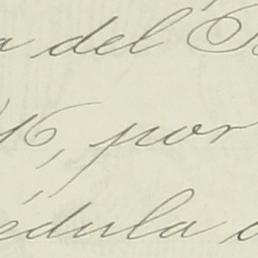 a del
16, por
édula